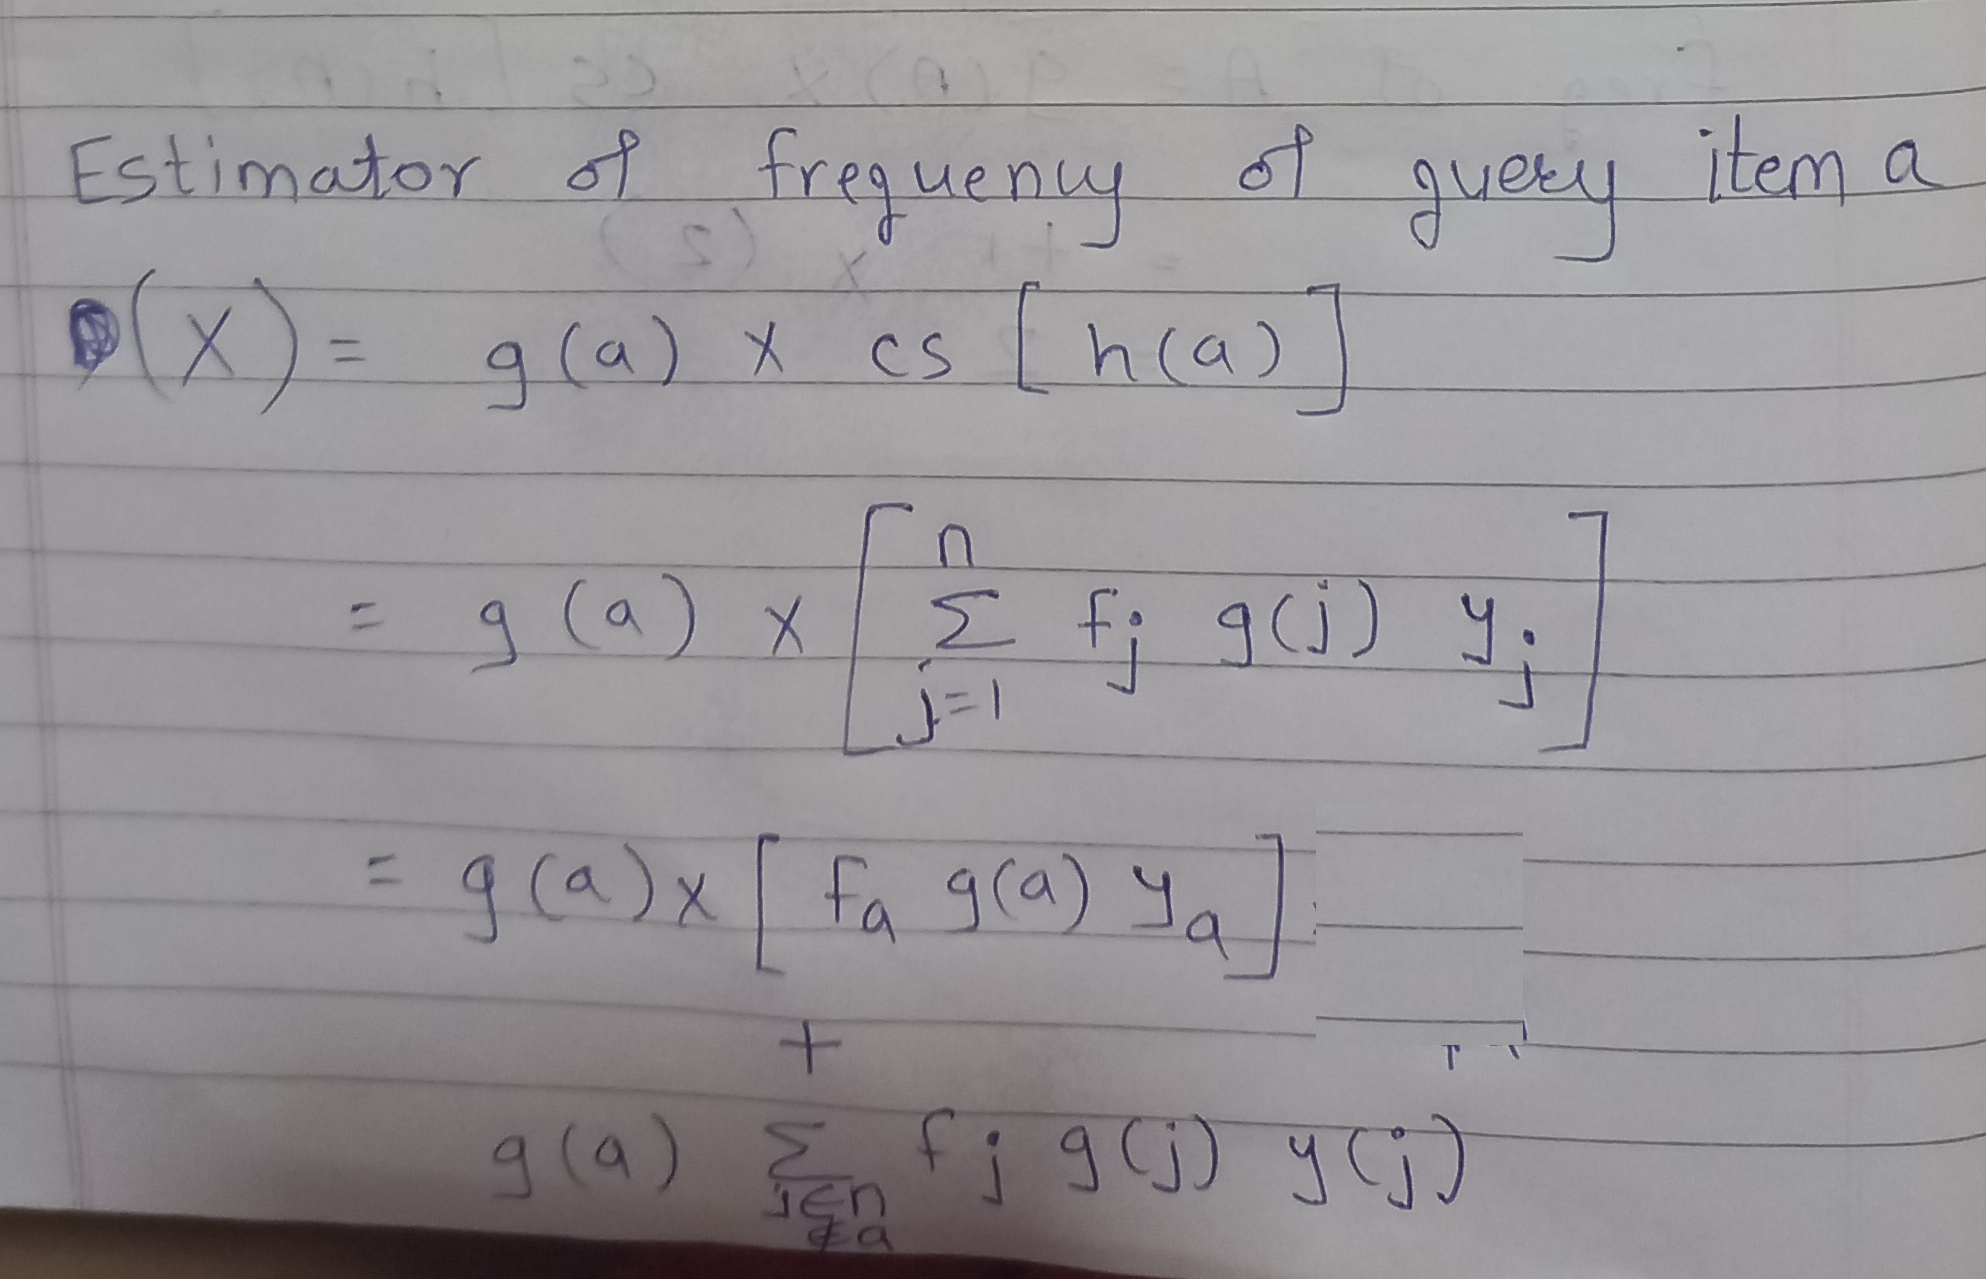 Estimator of frequency of query item a
(X) = g(a) x cs [h(a)]
= g(a) x [ n Σ j=1 fj g(j) yj ]
= g(a) x [ fa g(a) ya ]
+
g(a) Σ j∈n ∉a fj g(j) y(j)